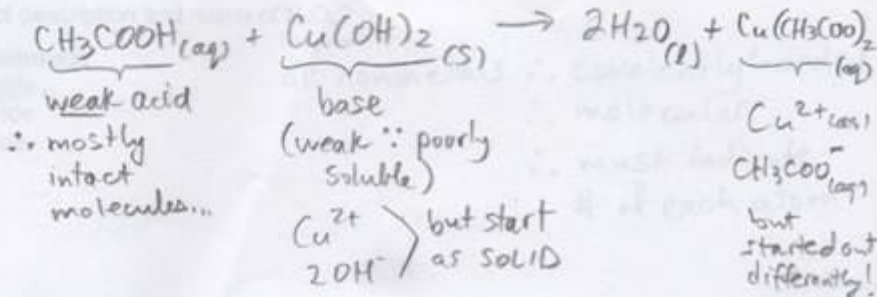 CH3COOH(aq) + Cu(OH)2(s) → 2H2O(l) + Cu(CH3COO)2(aq)
weak acid
∴ mostly
intact
molecules...
base
(weak ∵ poorly
soluble)
Cu2+
2OH-
but start
as SOLID
Cu2+(aq)
CH3COO-(aq)
but
started out
differently!